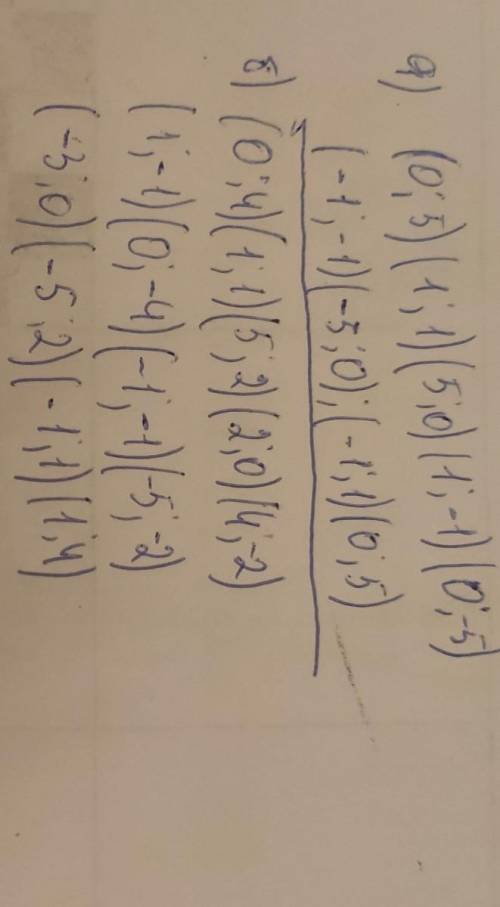 а) (0; 5)(1; 1)(5; 0)(1; -1)(0; -5)
(-1; -1)(-5; 0); (-1; 1)(0; 5)
б) (0; 4)(1; 1)(5; 2)(2; 0)(4; -2)
(1; -1)(0; -4)(-1; -1)(-5; -2)
(-3; 0)(-5; 2)(-1; 1)(1; 4)